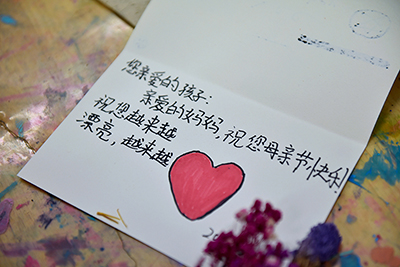 您亲爱的孩子：
亲爱的妈妈，祝您母亲节快乐！
祝您越来越
漂亮，越来越